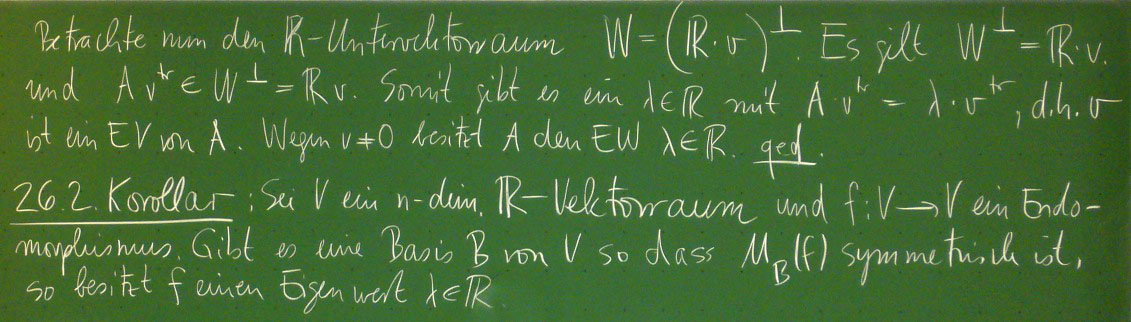 Betrachte nun den ℝ-Untervektorraum W = (ℝ·v)^⊥. Es gilt W^⊥ = ℝ·v.
und A v^tr ∈ W^⊥ = ℝv. Somit gibt es ein λ∈ℝ mit A·v^tr = λ·v^tr, d.h. v
ist ein EV von A. Wegen v≠0 besitzt A den EW λ∈ℝ. qed.
26.2. Korollar: Sei V ein n-dim. ℝ-Vektorraum und f: V → V ein Endo-
morphismus. Gibt es eine Basis B von V so dass M_B(f) symmetrisch ist,
so besitzt f einen Eigenwert λ∈ℝ